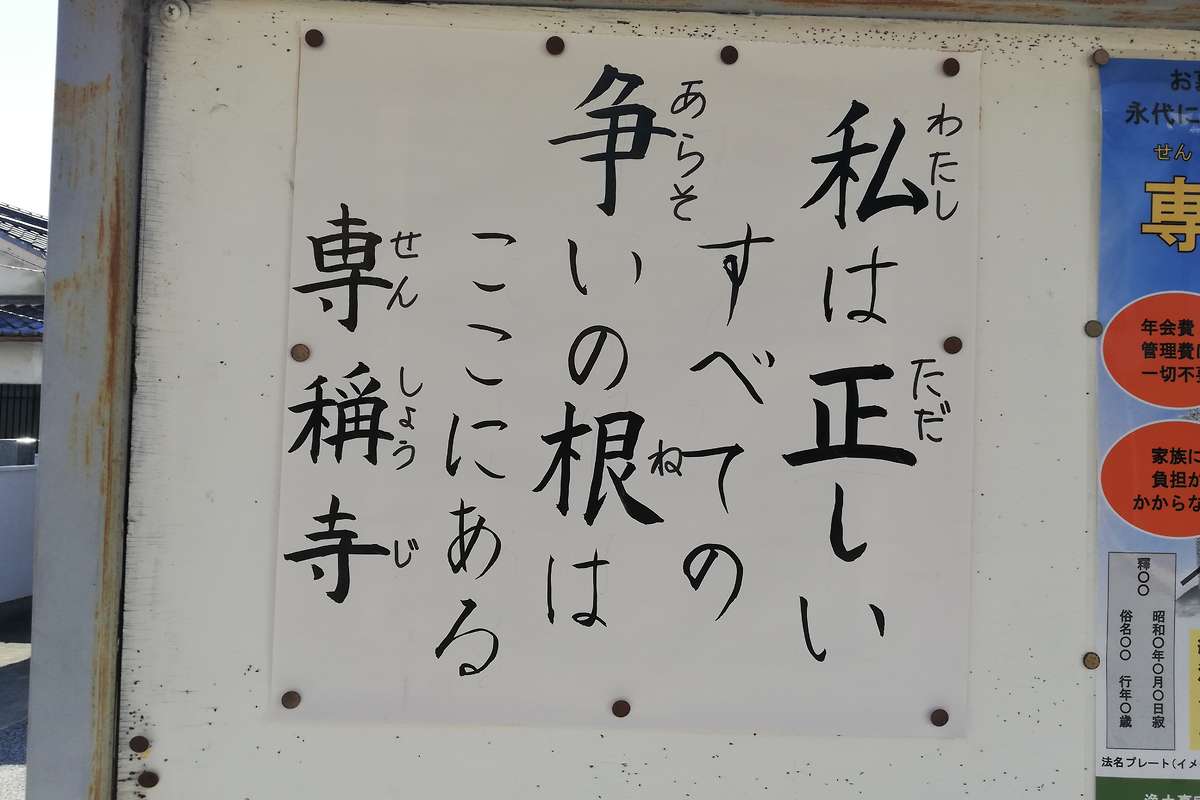 私は正しい
わたし
ただ
すべての
争いの根は
あらそ
ね
ここにある
専稱寺
せんしょうじ
永代に
せん
専
年会費
管理費
一切不
家族に
負担が
かからな
釋〇〇
昭和〇年〇月〇日寂
俗名〇〇 行年〇歳
法名プレート(イメ